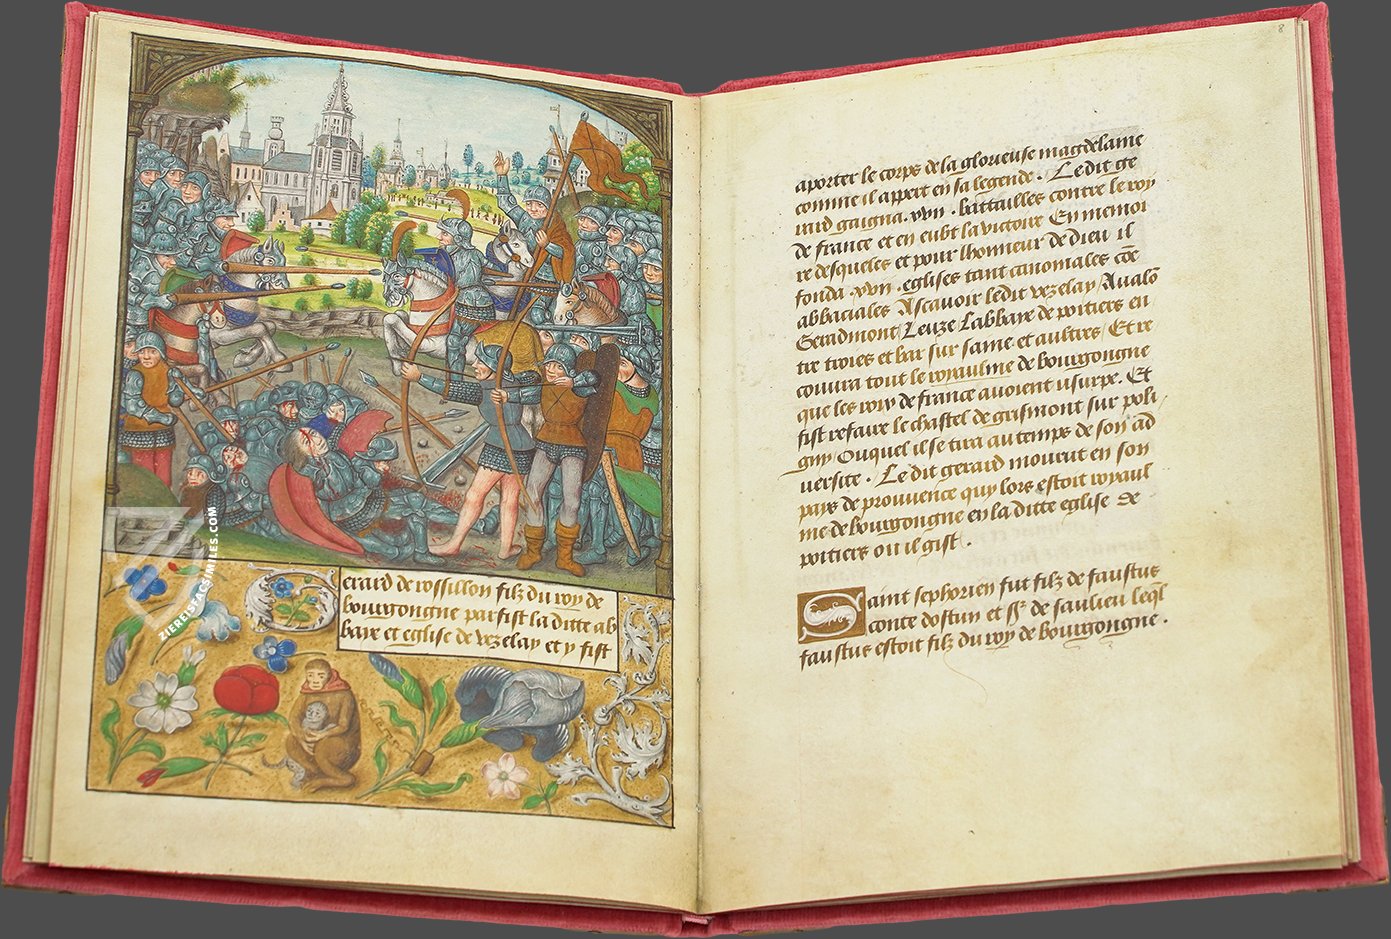 Gerard de rossillon filz du roy de
bourgongne par fist la ditte ab
baye et eglise de vezelay et y fist
8
aporter le corps de la glorieuse magdelaine
comme il appert en sa legende . Ledit ge
rard gaigna .xvii . battailles contre le roy
de france et en eubt la victoire En memoi
re desqueles et pour lhonnieur de dieu il
fonda .xvii .eglises tant canoniales cōe
abbaciales Ascavoir ledit vezelay Avalō
Gerardmont Leuze Labbaye de poitiers en
tre troies et bar sur saine et aultres Et re
couvra tout le royaulme de bourgongne
que les roys de france avoient usurpe. Et
fist refaire le chastel de grismont sur poli
gny Ouquel il se tira au temps de son ad
versite . Le dit gerard mourut en son
pays de prouvence quy lors estoit royaul
me de bourgongne en la ditte eglise de
poitiers ou il gist .
Saint sephorien fut filz de faustus
conte dostun et Sr de saulieu leql
faustus estoit filz du roy de bourgongne .
ZIEREISFACSIMILES.COM